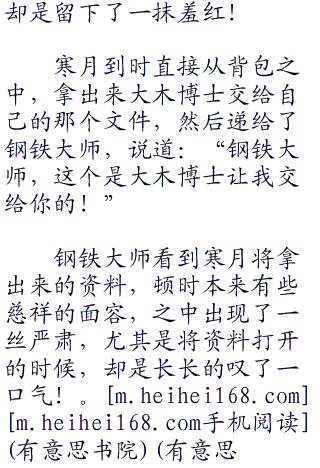 却是留下了一抹羞红！
寒月到时直接从背包之
中，拿出来大木博士交给自
己的那个文件，然后递给了
钢铁大师，说道：“钢铁大
师，这个是大木博士让我交
给你的！”
钢铁大师看到寒月将拿
出来的资料，顿时本来有些
慈祥的面容，之中出现了一
丝严肃，尤其是将资料打开
的时候，却是长长的叹了一
口气！。[m.heihei168.com]
[m.heihei168.com手机阅读]
(有意思书院)(有意思